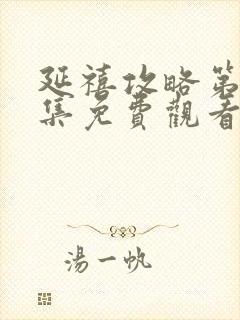 延禧攻略第
集免費觀看
湯一帆